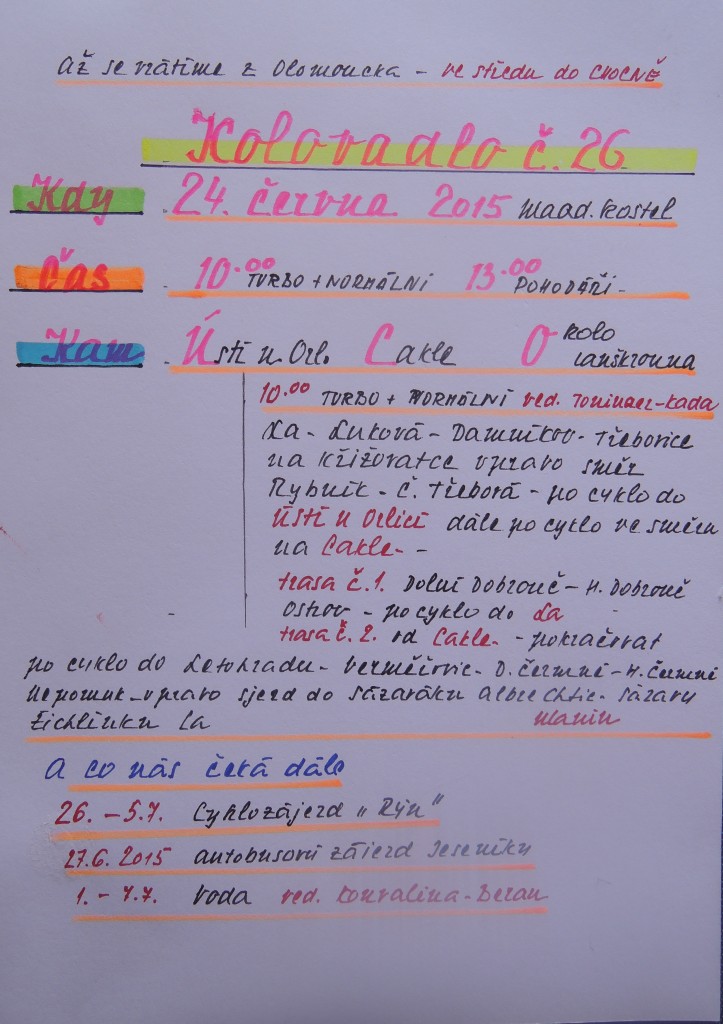 Až se vrátíme z Olomoucka - ve středu do CHOCNĚ
Kolovadlo č. 26
Kdy 24. června 2015 Maad. kostel
Čas 10.00 TURBO + NORMÁLNÍ 13.00 POHODÁŘI -
Kam Ústí n Orl. Cakle O kolo
Lanškrouna
10.00 TURBO + NORMÁLNÍ ved. - Kada
La - Luková - Damníkov - Třebovice
na křižovatce vpravo směr
Rybník - Č. Třebová - po cyklo do
ÚSTÍ N ORLICÍ dále po cyklo ve směru
na Cakle - -
trasa č. 1. Dolní Dobrouč - H. Dobrouč
Ostrov - po cyklo do La
trasa č. 2. od Cakle - pokračovat
po cyklo do Letohradu - Verměřovic - D. Čermné - H. Čermné
Nepomuk - vpravo sjezd do Sázaváku Albrechtic - Sázavy
Žichlínku La
A co nás čeká dále
26. - 5.7. Cyklozájezd „Rýn"
27.6. 2015 autobusový zájezd Jeseníku
1. - 7.7. Voda ved. Konvalina - Beran